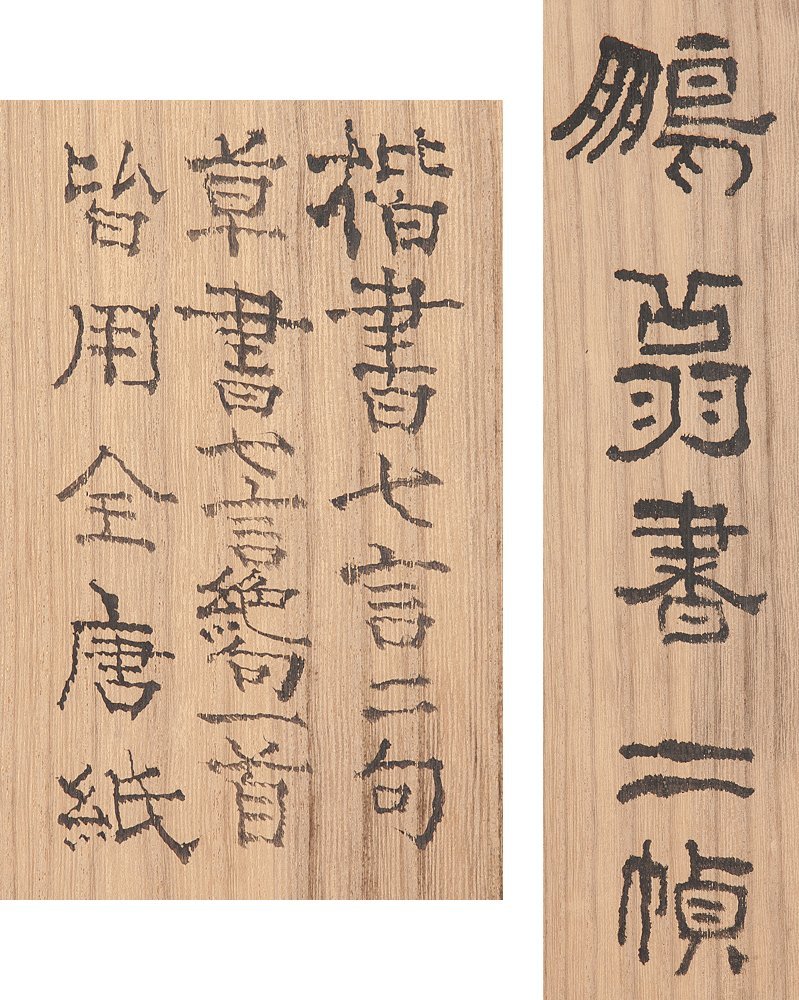 鵬翁書二幀
楷書七言二句
草書七言絶句一首
皆用全唐紙